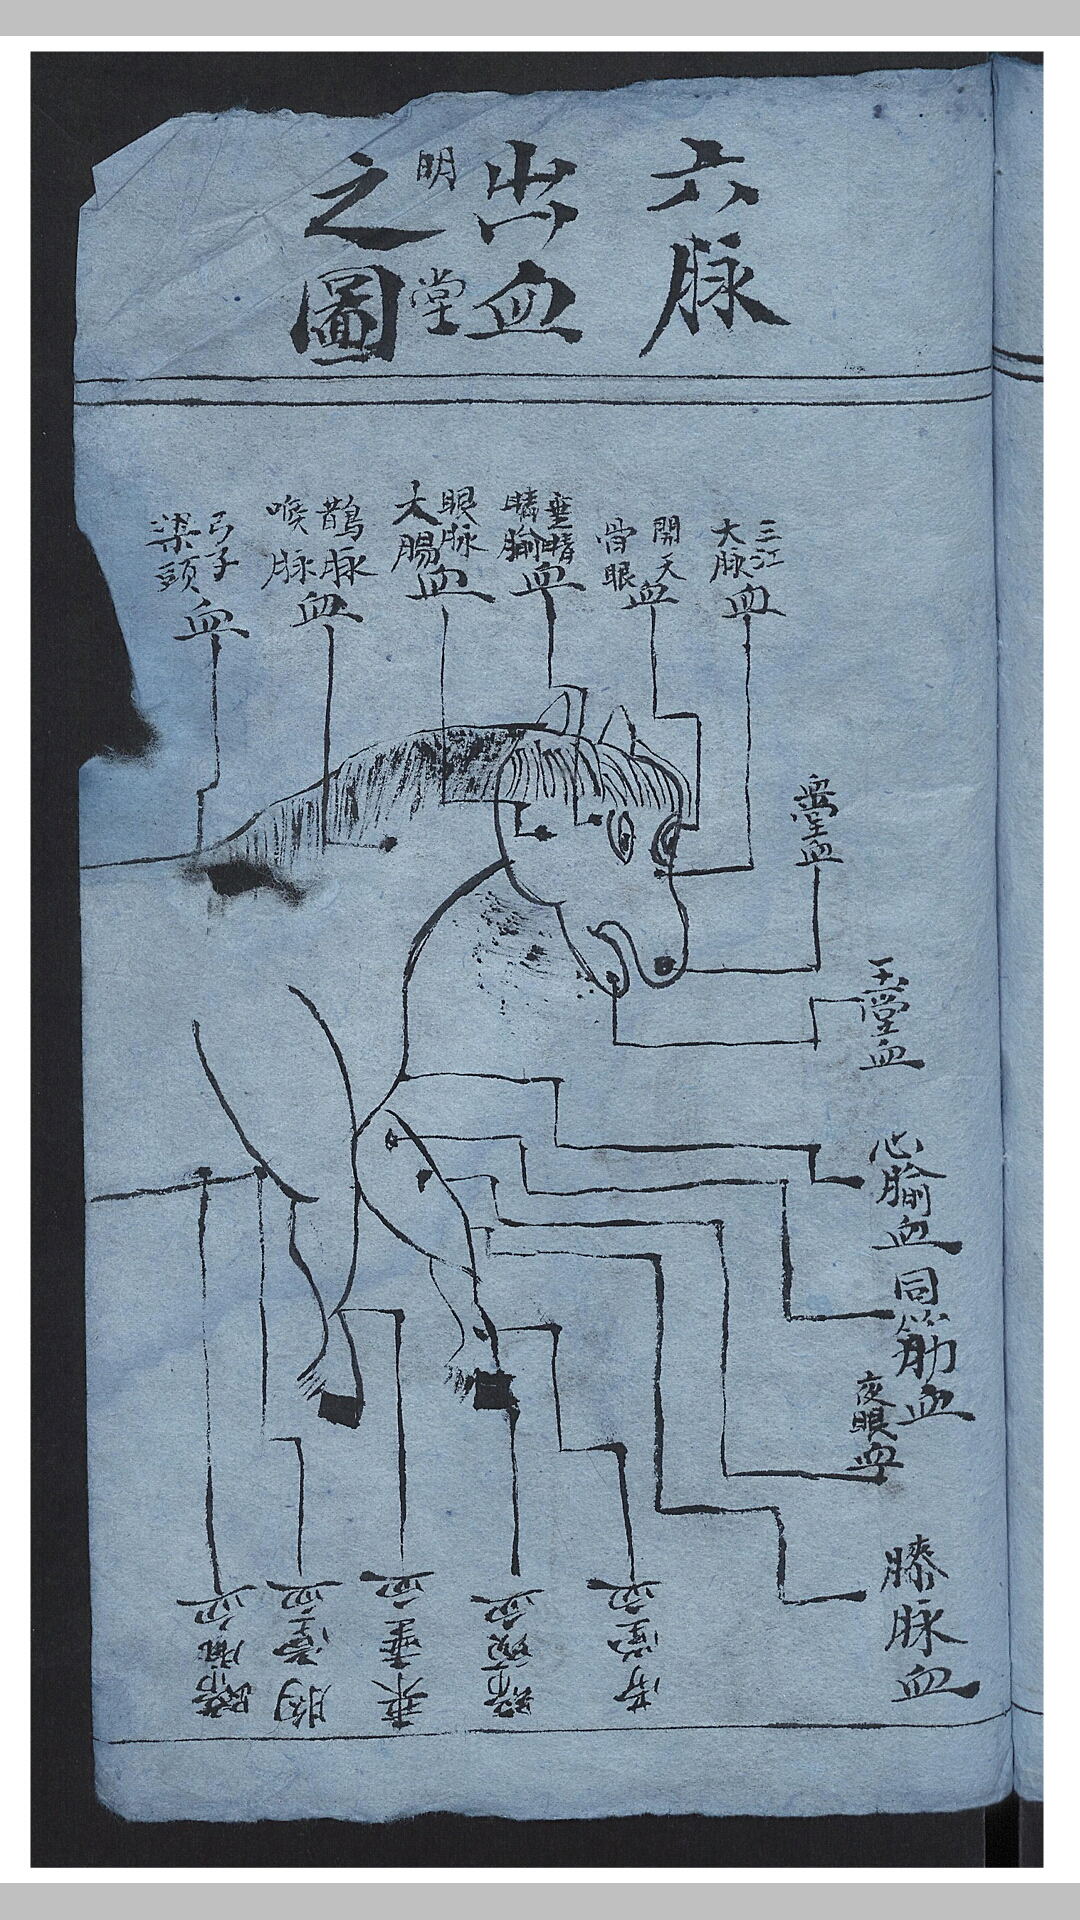 六脉
出血
明堂
之圖
三江
大脉
血
開天
骨眼
血
垂睛
睛腧
血
眼脉
大腸
血
鶻脉
喉脉
血
弓子
梁頭
血
血堂血
玉堂血
心腧血
同筋血
夜眼血
膝脉血
血
蹄頭血
垂
血
胸堂血
血